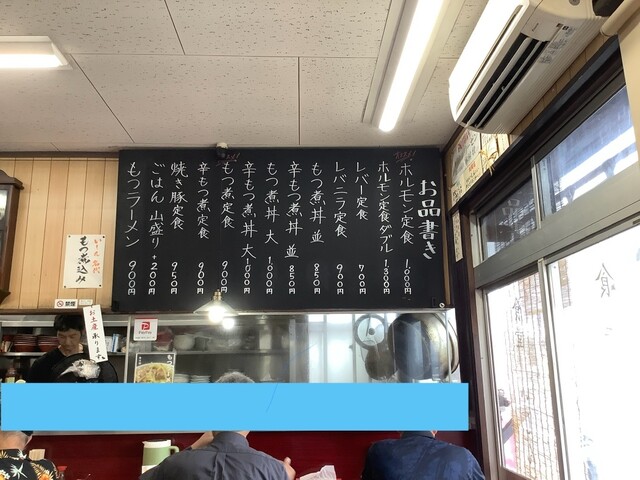 お品書き
ホルモン定食 1,000円
ホルモン定食ダブル 1,300円
レバー定食 700円
レバニラ定食 900円
もつ煮丼 並 850円
辛もつ煮丼 並 850円
もつ煮丼 大 1,000円
辛もつ煮丼 大 1,000円
もつ煮定食 900円
辛もつ煮定食 900円
焼き豚定食 950円
ごはん 山盛り +200円
もつラーメン 900円
もつ煮込み
禁煙
お土産 承ります
PayPay